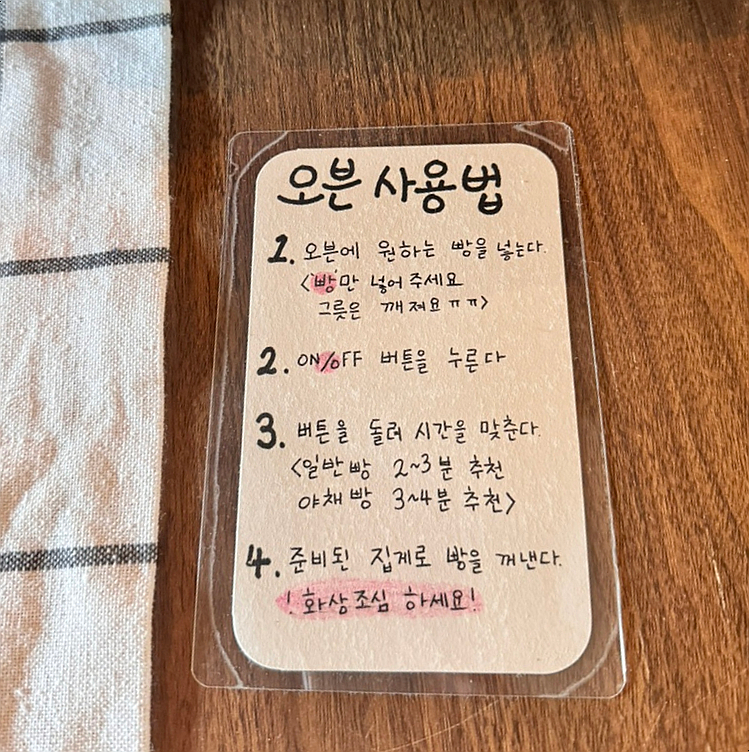 오븐 사용법
1. 오븐에 원하는 빵을 넣는다.
<'빵'만 넣어 주세요
그릇은 깨져요 ㅠㅠ>
2. ON/OFF 버튼을 누른다
3. 버튼을 돌려 시간을 맞춘다.
<일반빵 2~3분 추천
야채빵 3~4분 추천>
4. 준비된 집게로 빵을 꺼낸다.
! 화상조심 하세요!